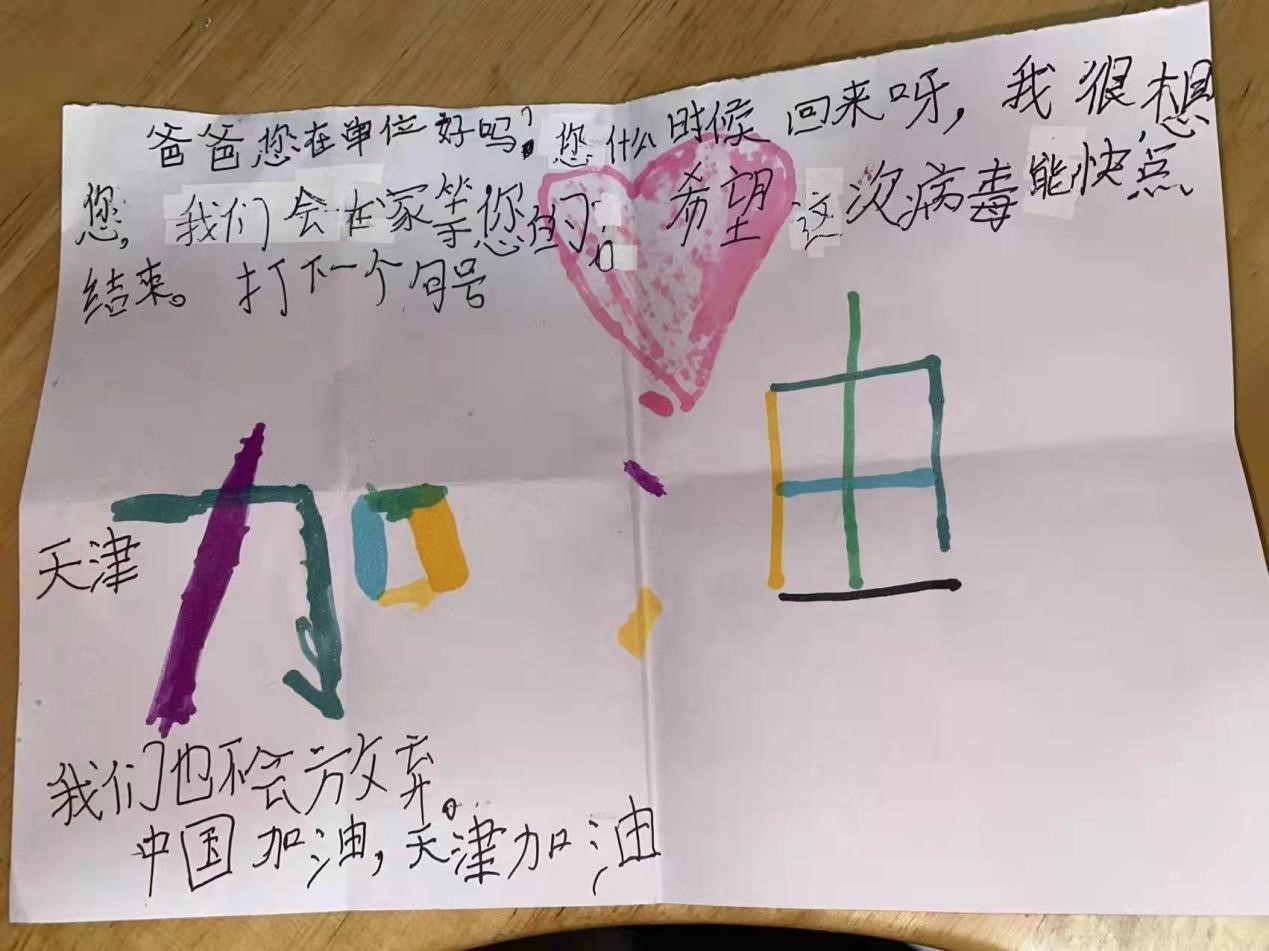 爸爸您在单位好吗?您什么时候回来呀,我很想
您,我们会在家等您的。希望这次病毒能快点
结束。打下一个句号
天津
加油
我们也不会放弃。
中国加油,天津加油